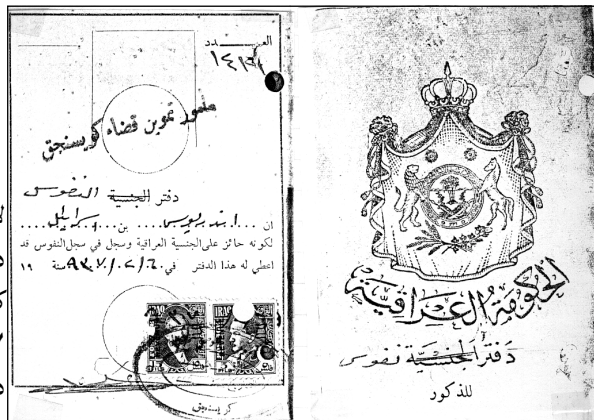 الحكومة العراقية
دفتر الجنسية نفوس
للذكور
العـــدد
مأمور تموين قضاء كويسنجق
دفتر الجنسية النفوس
ان ... بن ...
لكونه حائز على الجنسية العراقية وسجل في سجل النفوس قد
اعطي له هذا الدفتر في سنة ١٩
IRAQ IRAQ